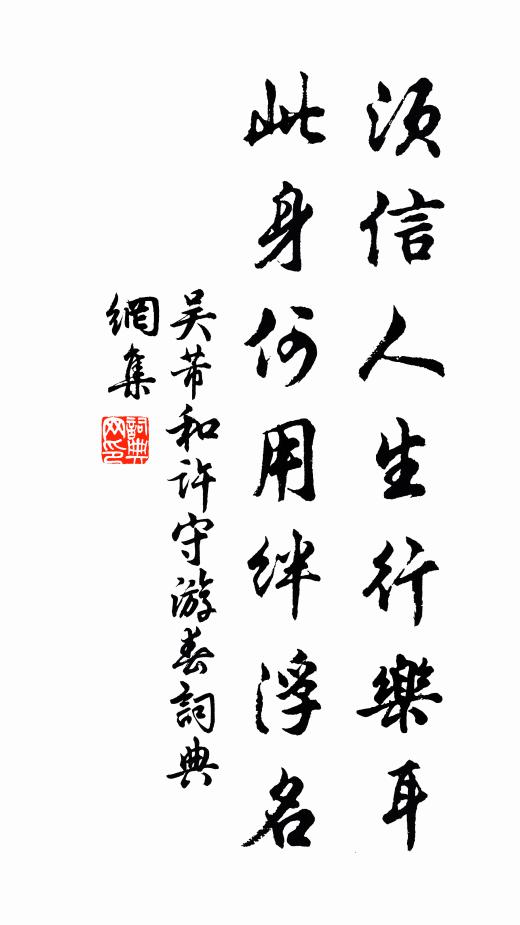 須信人生行樂耳
此身何用絆浮名
吳芾和許守游春詞典
網集
詞典網印